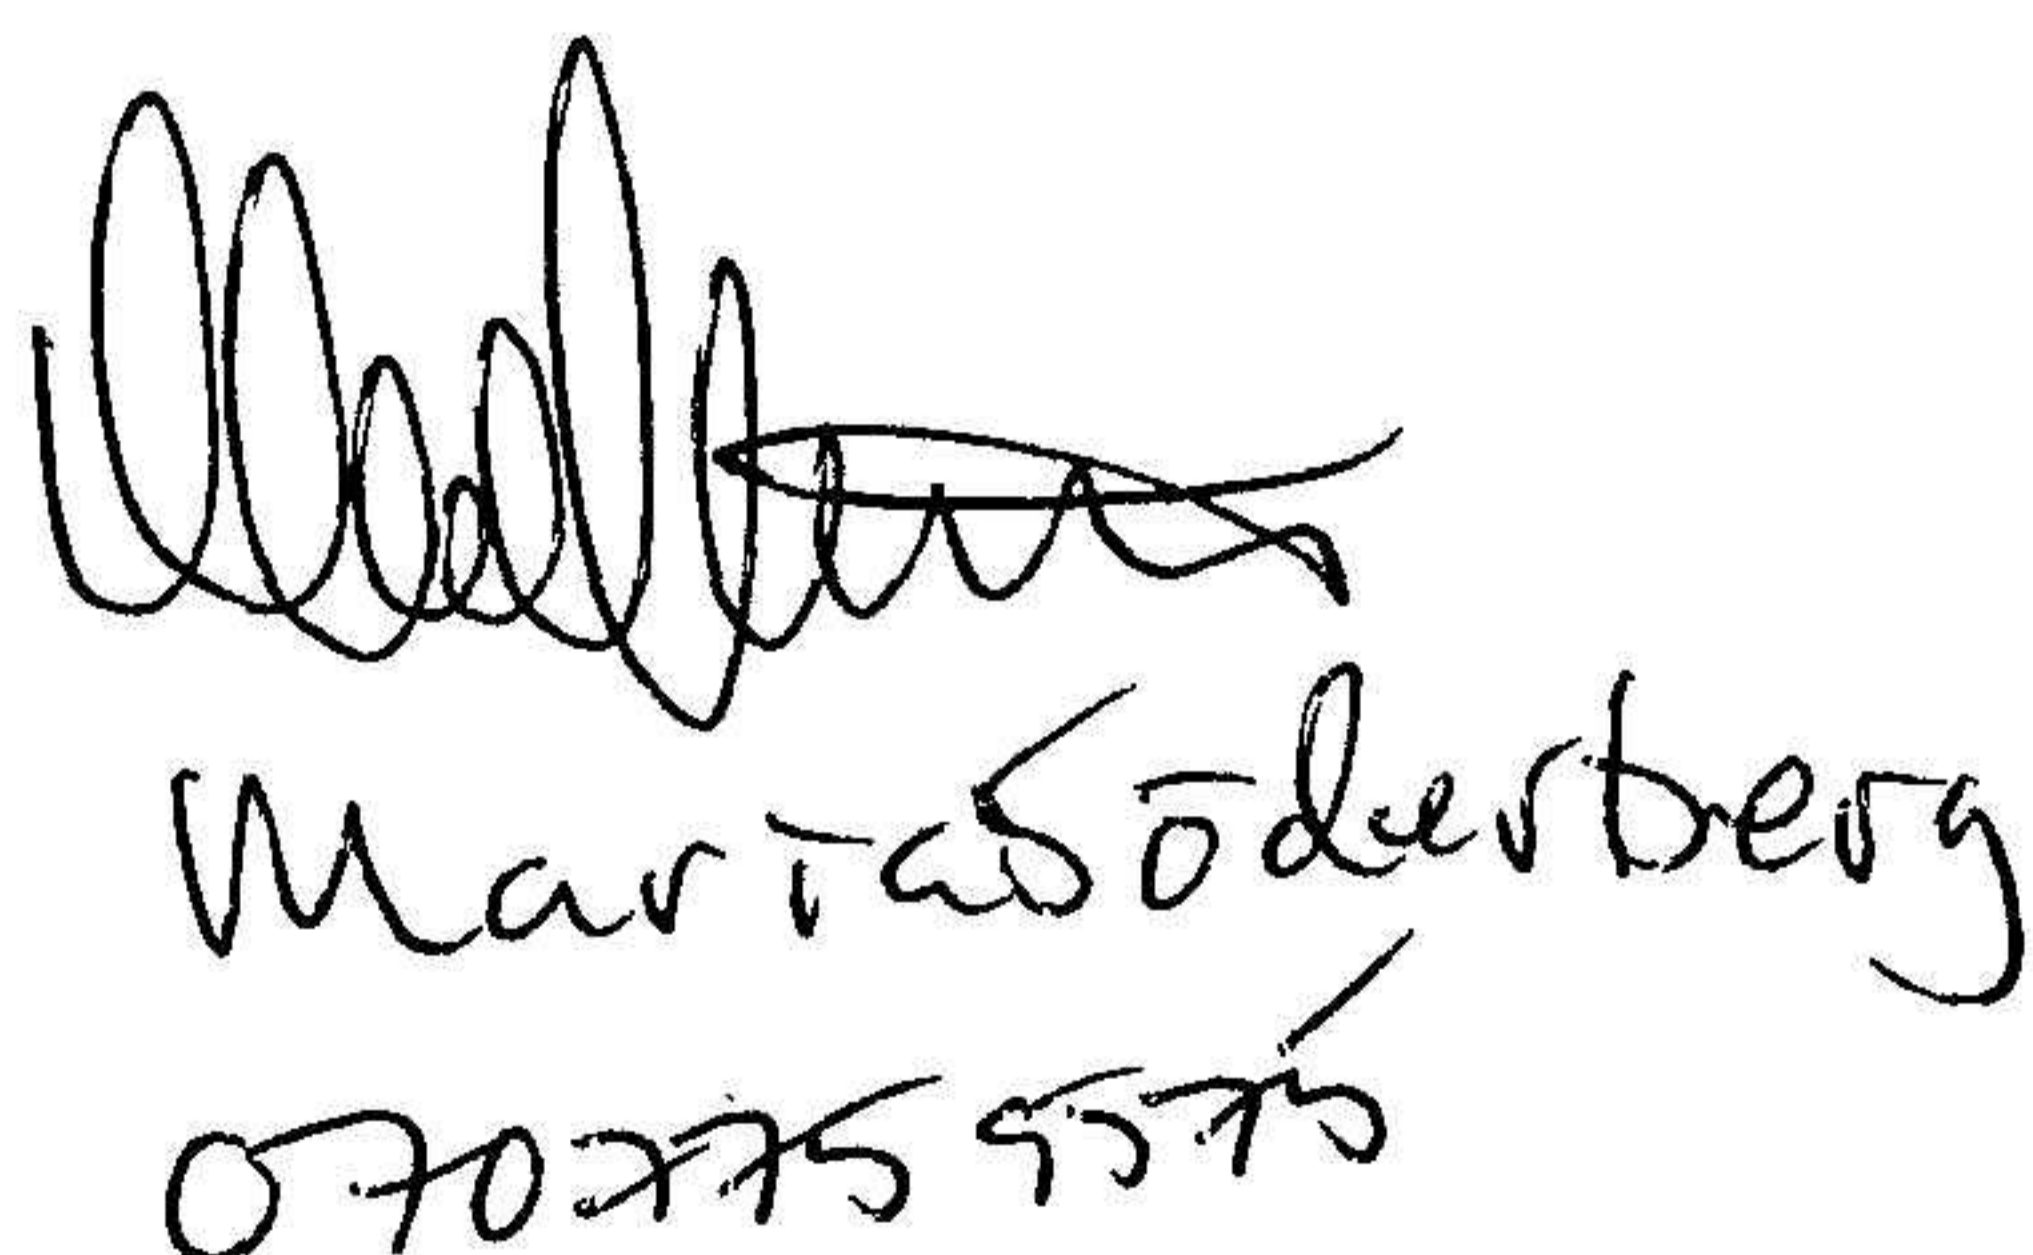 Maria Söderberg
070 775 9575